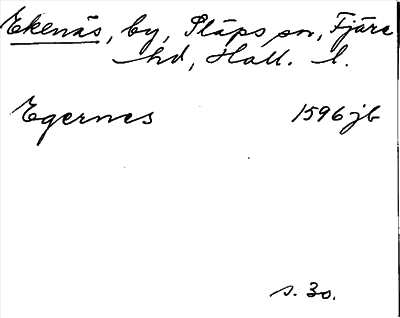 Ekenäs, by, Släps sn, Fjäre
hd, Hall. l.
Egernes 1596 jb
s. 30.